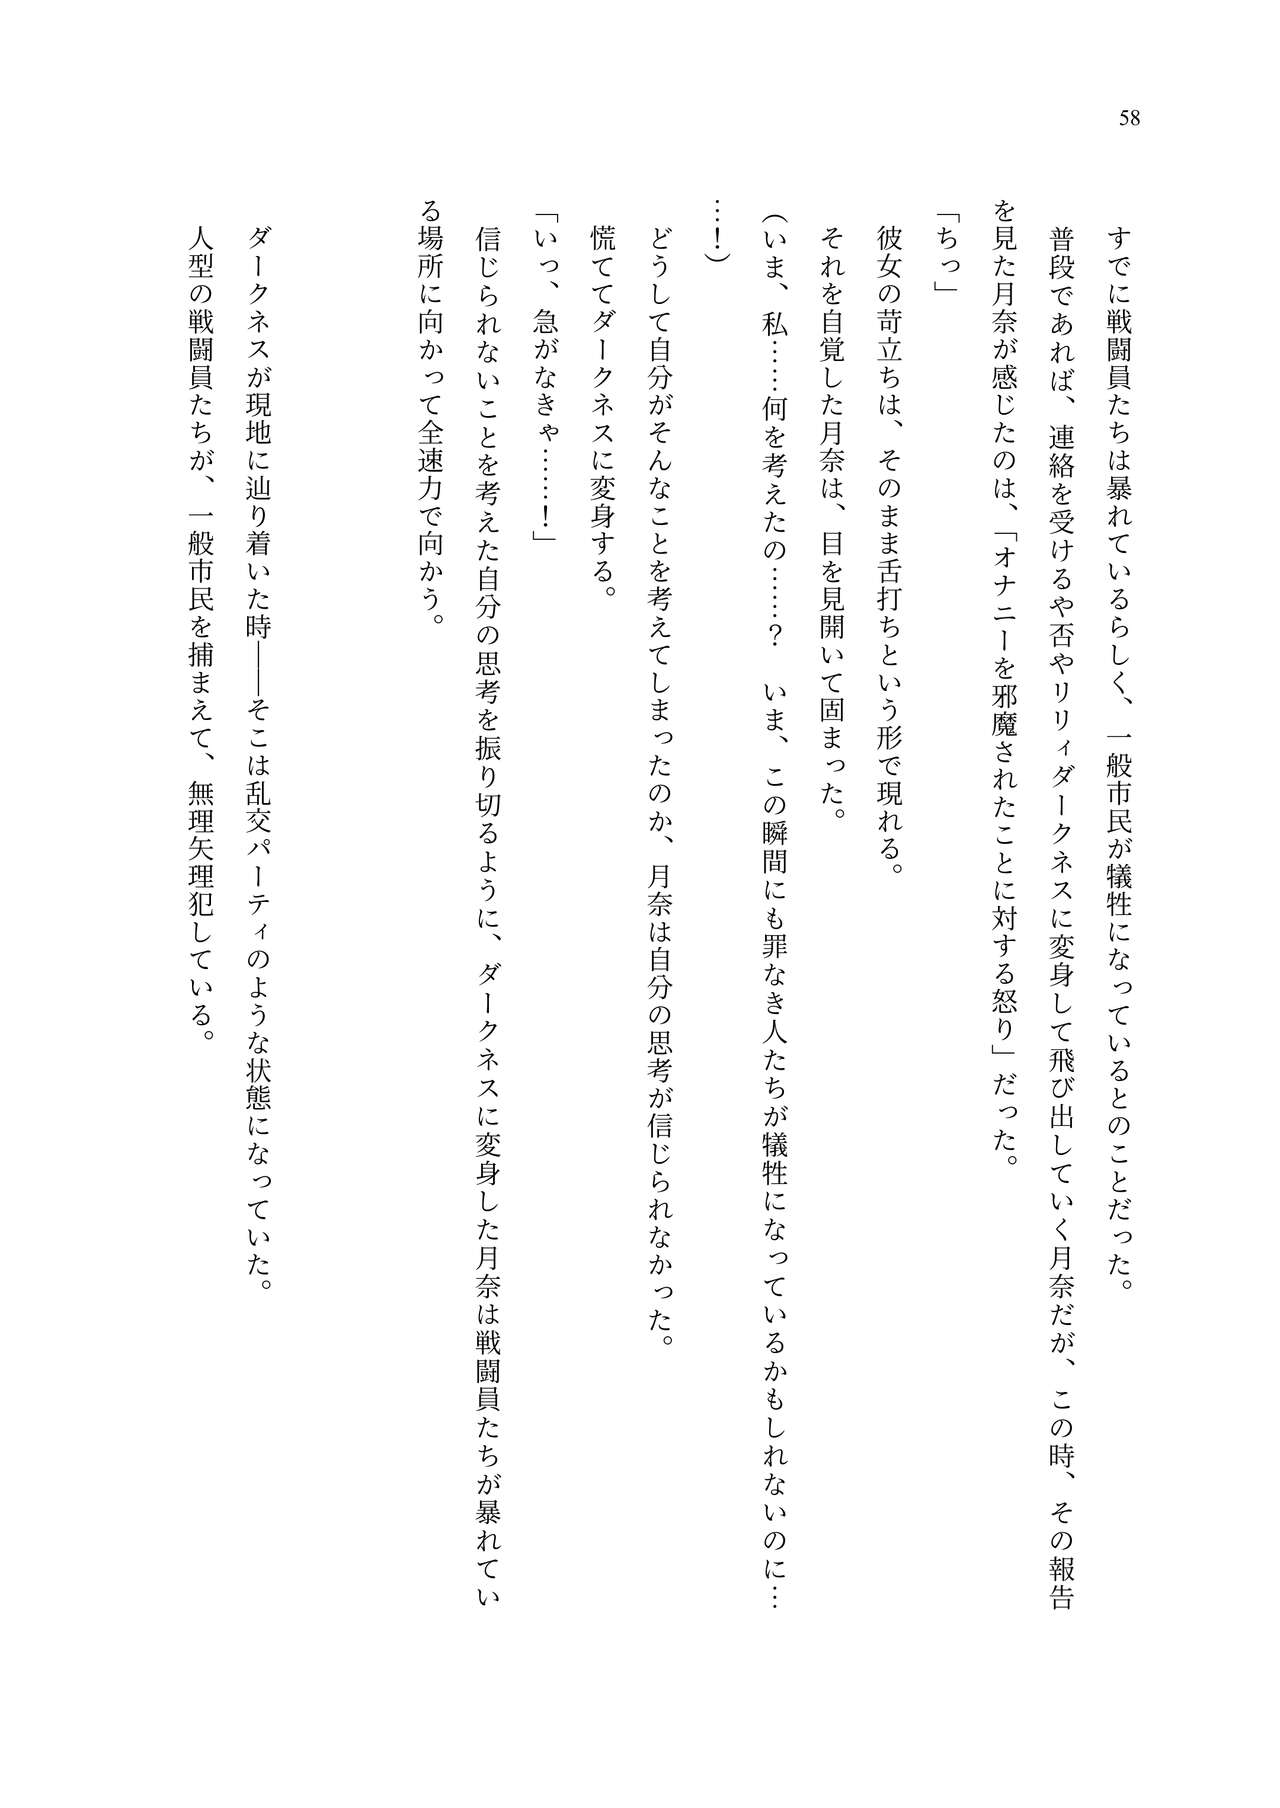 58
すでに戦闘員たちは暴れているらしく、一般市民が犠牲になっているとのことだった。
普段であれば、連絡を受けるや否やリリィダークネスに変身して飛び出していく月奈だが、この時、その報告
を見た月奈が感じたのは、「オナニーを邪魔されたことに対する怒り」だった。
「ちっ」
彼女の苛立ちは、そのまま舌打ちという形で現れる。
それを自覚した月奈は、目を見開いて固まった。
（いま、私……何を考えたの……？　いま、この瞬間にも罪なき人たちが犠牲になっているかもしれないのに…
…！）
どうして自分がそんなことを考えてしまったのか、月奈は自分の思考が信じられなかった。
慌ててダークネスに変身する。
「いっ、急がなきゃ……！」
信じられないことを考えた自分の思考を振り切るように、ダークネスに変身した月奈は戦闘員たちが暴れてい
る場所に向かって全速力で向かう。
ダークネスが現地に辿り着いた時――そこは乱交パーティのような状態になっていた。
人型の戦闘員たちが、一般市民を捕まえて、無理矢理犯している。